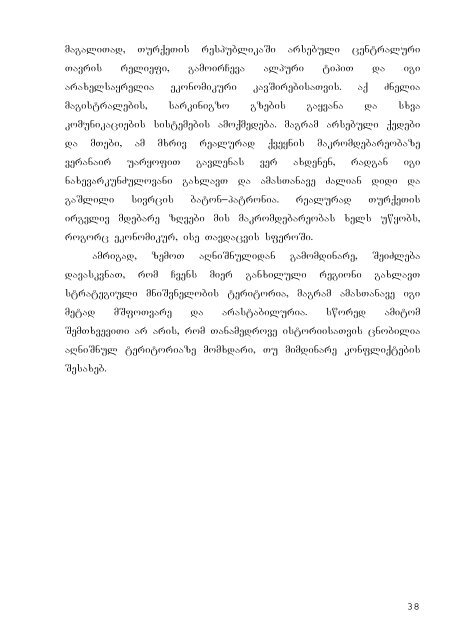 მაგალითად, თურქეთის რესპუბლიკაში არსებული ცენტრალური
თავრის რელიეფი, გამოირჩევა ალპური ტიპით და იგი
არახელსაყრელია ეკონომიკური კავშირებისათვის. აქ ძნელია
მაგისტრალების, სარკინიგზო გზების გაყვანა და სხვა
კომუნიკაციების სისტემების ამოქმედება. მაგრამ არსებული ქედები
და მთები, ამ მხრივ რეალურად ქვეყნის მაკრომდებარეობაზე
ვერანაირ უარყოფით გავლენას ვერ ახდენენ, რადგან იგი
ნახევარკუნძულოვანი გახლავთ და ამასთანავე ძალიან დიდი და
გაშლილი სივრცის ბატონ–პატრონია. რეალურად თურქეთის
ირგვლივ მდებარე ზღვები მის მაკრომდებარეობას ხელს უწყობს,
როგორც ეკონომიკურ, ისე თავდაცვის სფეროში.
ამრიგად, ზემოთ აღნიშნულიდან გამომდინარე, შეიძლება
დავასკვნათ, რომ ჩვენს მიერ განხილული რეგიონი გახლავთ
სტრატეგიული მნიშვნელობის ტერიტორია, მაგრამ ამასთანავე იგი
მეტად მშფოთვარე და არასტაბილურია. სწორედ ამიტომ
შემთხვევითი არ არის, რომ თანამედროვე ისტორიისათვის ცნობილია
აღნიშნულ ტერიტორიაზე მომხდარი, თუ მიმდინარე კონფლიქტების
შესახებ.
38